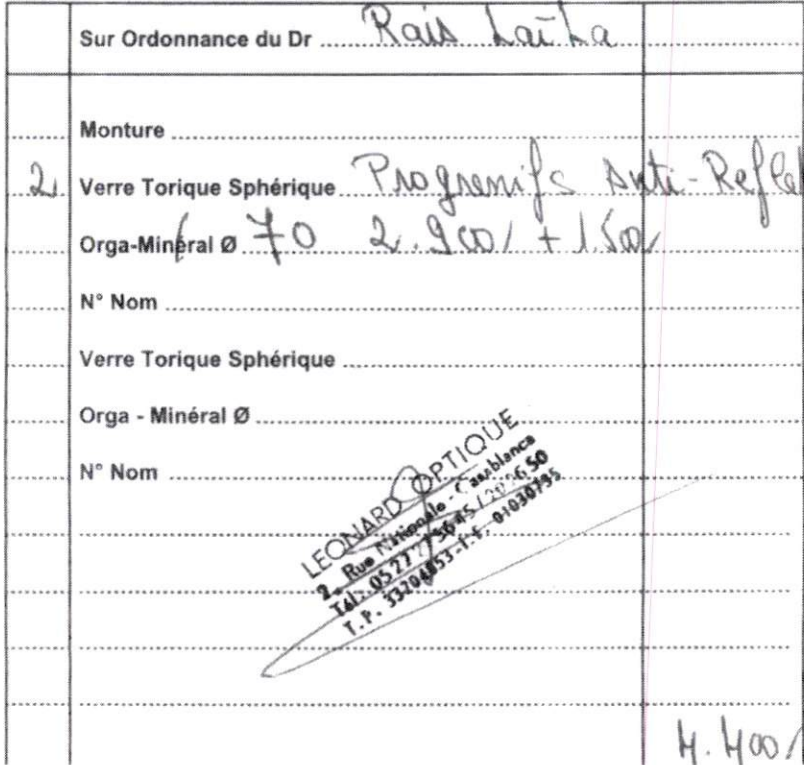 Sur Ordonnance du Dr Rais Laïla
Monture
2 Verre Torique Sphérique Progressifs Anti-Reflet
Orga-Minéral Ø 70 2.900/ + 1.500/
N° Nom
Verre Torique Sphérique
Orga - Minéral Ø
N° Nom
LEONARD OPTIQUE
2, Rue Nationale - Casablanca
Tél.: 05 27
T.P. 33204853-I.F. 01030795
4.400/